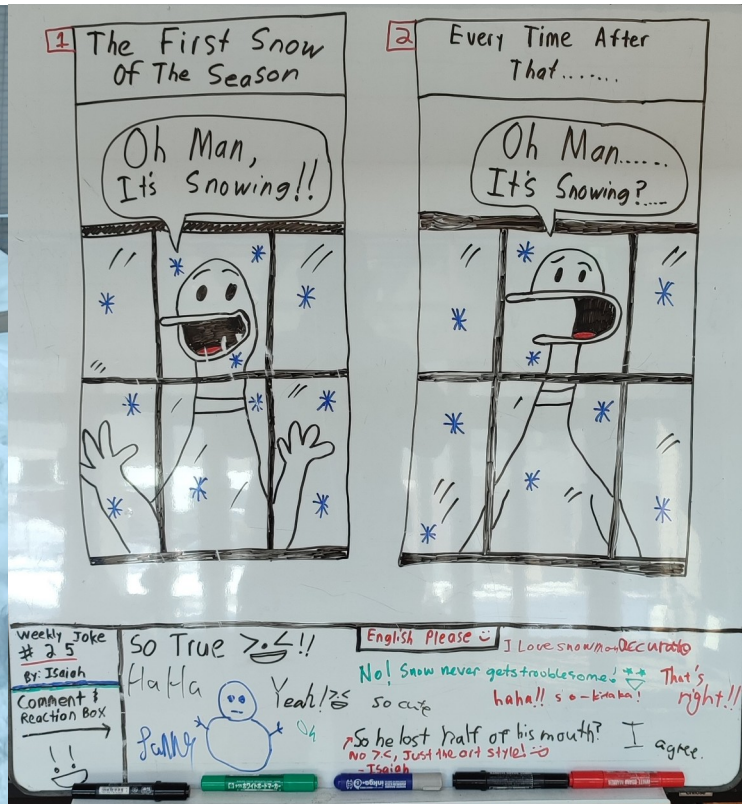 1 The First Snow
Of The Season
Oh Man,
It's Snowing!!
2 Every Time After
That.......
Oh Man......
It's Snowing?....
Weekly Joke
# 25
By: Isaiah
Comment &
Reaction Box
!!
So True >.<!!
HaHa
Yeah!
Funny
Oh
English Please
I Love snowman
Accurate
No! Snow never gets troublesome!
That's
right!!
So cute
haha!! so-
So he lost half of his mouth?
I agree.
No >.<, Just the art style!
- Isaiah
ホワイトボードマーカー